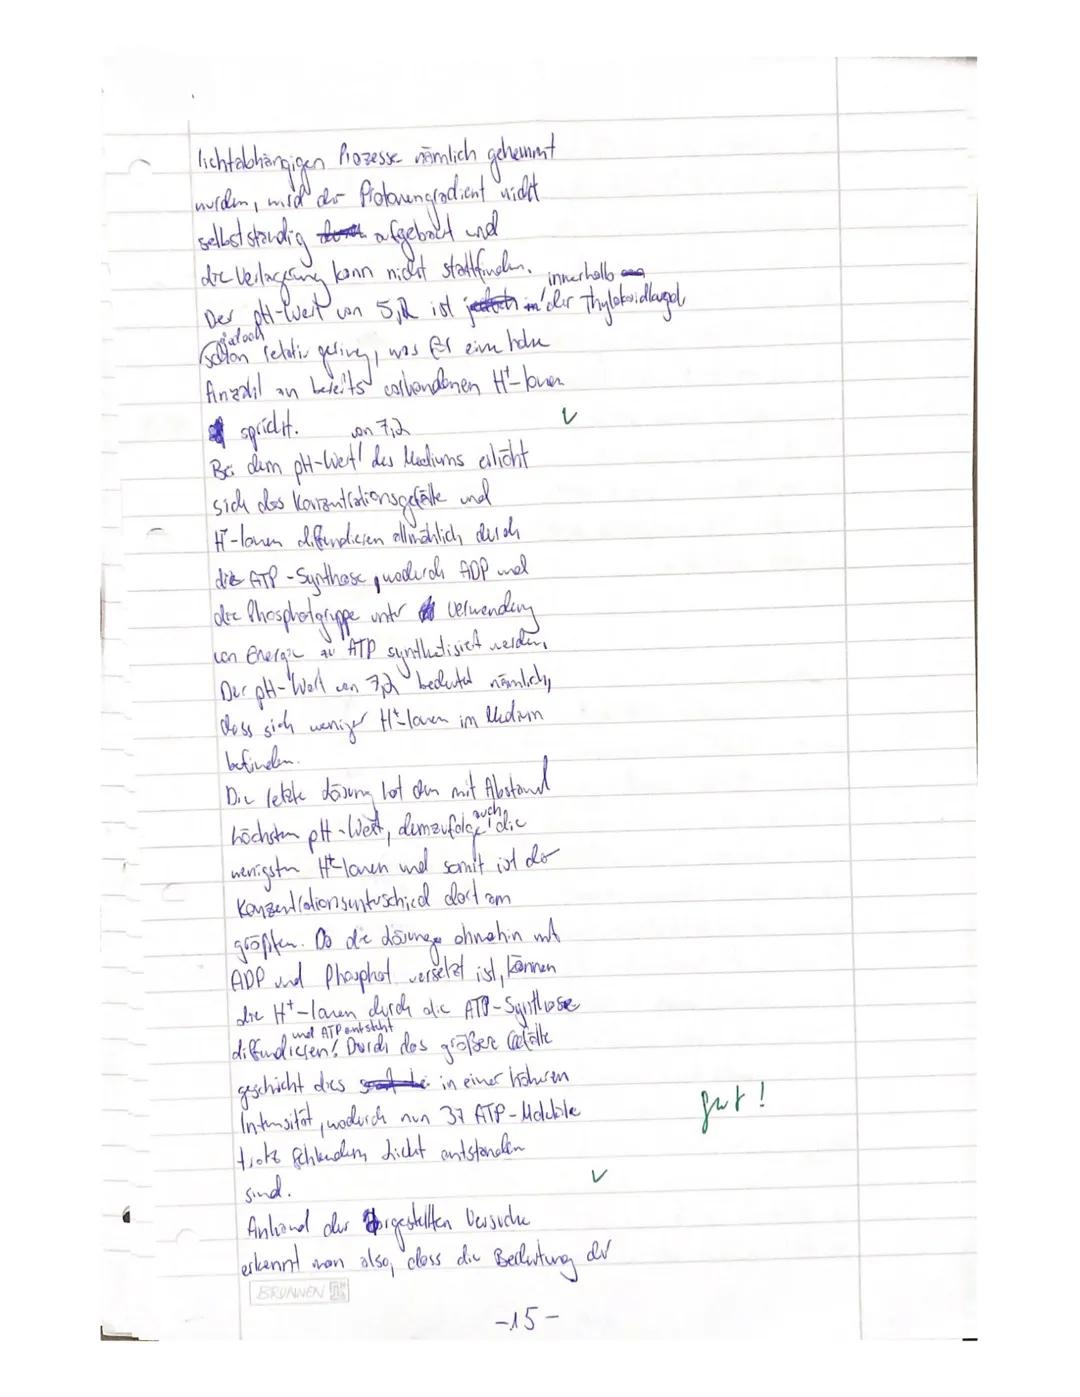 lichtabhängigen Prozesse nämlich gehemmt
wurden, wird der Protonengradient nicht
selbstständig aufgebaut und
die Verlagerung kann nicht stattfinden.
innerhalb
Der pH-Wert von 5,2 ist in der Thylakoidkugel
jedoch
schon relativ gering, was für eine hohe
Anzahl an bereits vorhandenen H⁺-Ionen
spricht.
von 7,2
Bei dem pH-Wert des Mediums erhöht
sich das Konzentrationsgefälle und
H⁺-Ionen diffundieren allmählich durch
die ATP-Synthase, wodurch ADP und
die Phosphatgruppe unter Verwendung
von Energie zu ATP synthetisiert werden.
Der pH-Wert von 7,2 bedeutet nämlich,
dass sich weniger H⁺-Ionen im Medium
befinden.
Die letzte Lösung hat den mit Abstand
höchsten pH-Wert, demzufolge auch die
wenigsten H⁺-Ionen und somit ist der
Konzentrationsunterschied dort am
größten. Da die Lösung ohnehin mit
ADP und Phosphat versetzt ist, können
die H⁺-Ionen durch die ATP-Synthase
und ATP entsteht
diffundieren! Durch das größere Gefälle
geschieht dies in einer höheren
Intensität, wodurch nun 37 ATP-Moleküle
gut!
trotz fehlendem Licht entstanden
sind.
Anhand der dargestellten Versuche
erkennt man also, dass die Bedeutung der
BRUNNEN
-15-